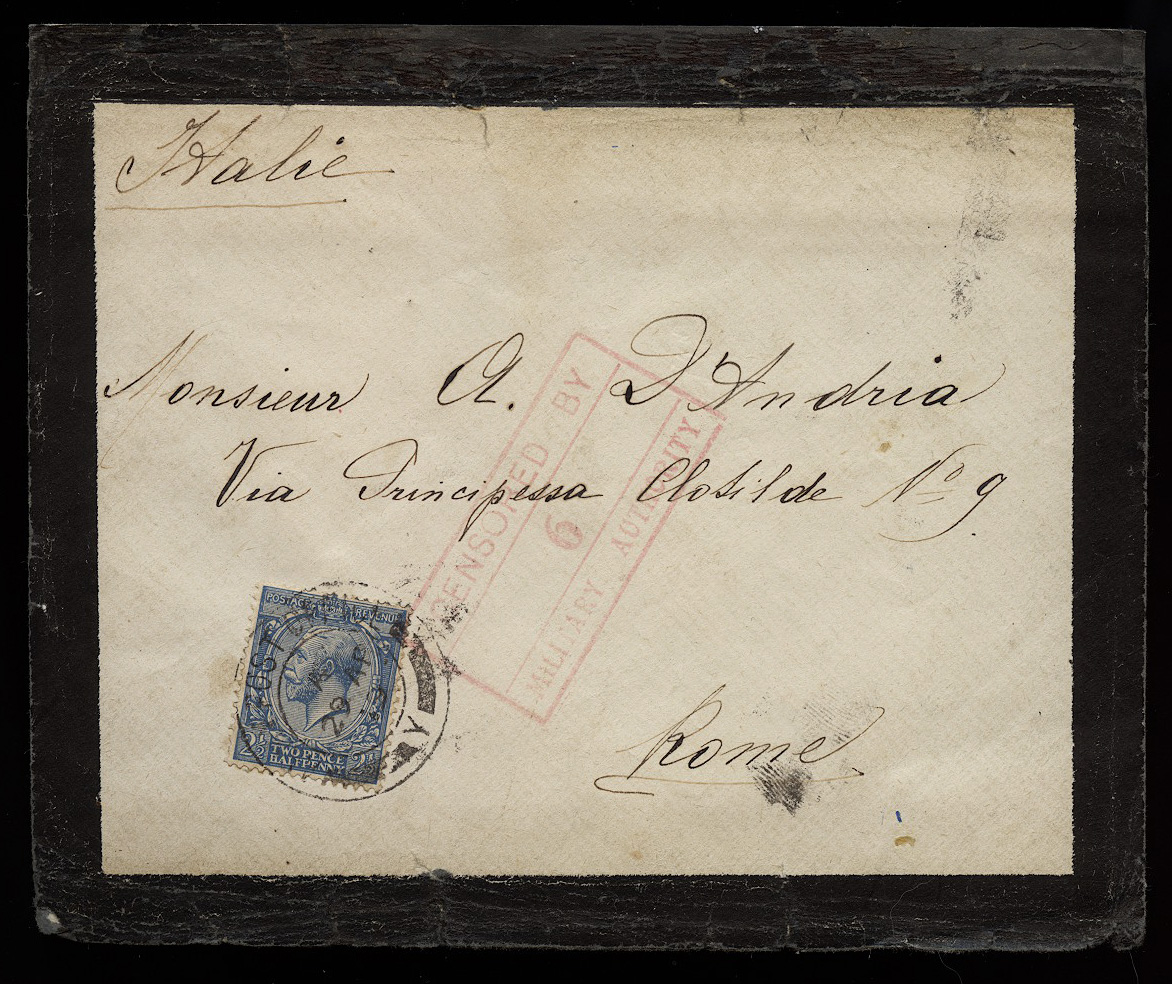 Italie
Monsieur A. D'Andria
Via Principessa Clotilde Nº 9
Rome
CENSORED BY
6
MILITARY AUTHORITY
POSTAGE REVENUE
2½ TWO PENCE HALFPENNY 2½
29 AP